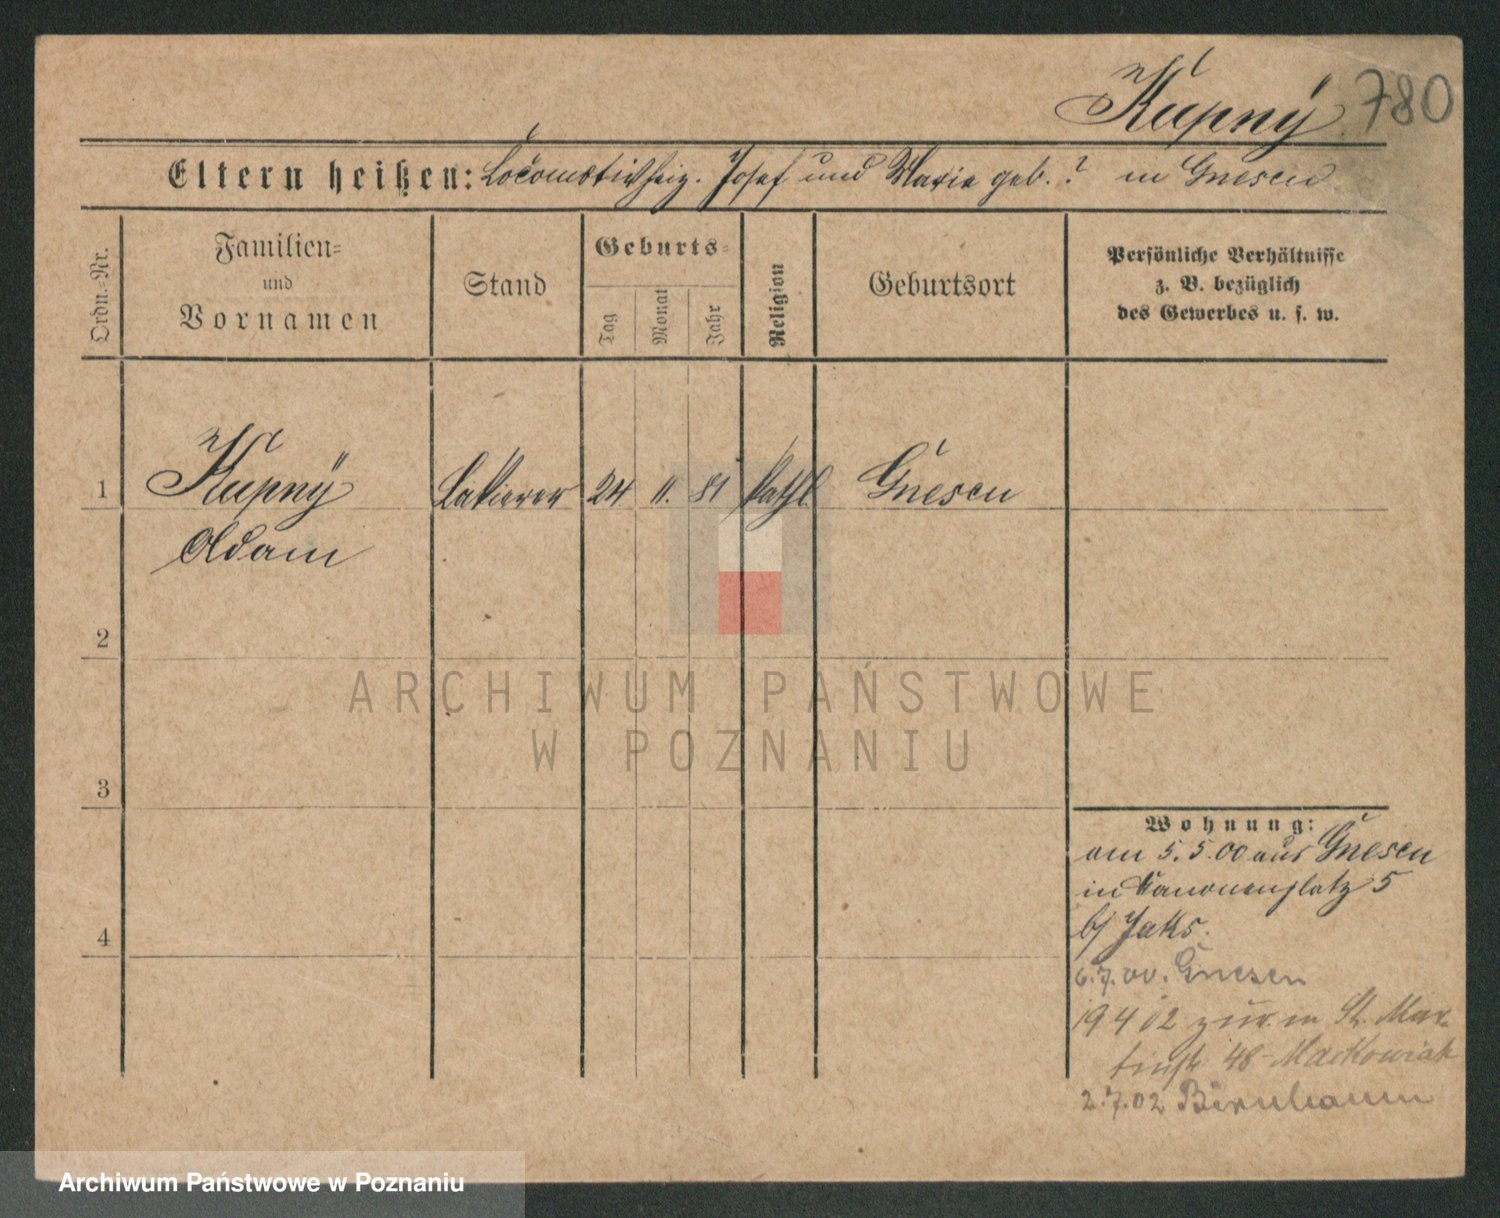 Kupny 780
Eltern heißen: Locomotivheiz. Josef und Marie geb. ? in Gnesen
Ordn.=Nr.
Familien=
und
Vornamen
Stand
Geburts=
Tag
Monat
Jahr
Religion
Geburtsort
Persönliche Verhältnisse
z. B. bezüglich
des Gewerbes u. s. w.
1 Kupny Lakierer 24 11. 81 kathl Gnesen
Adam
2
3
4
ARCHIWUM PAŃSTWOWE
W POZNANIU
Wohnung:
am 5.5.00 aus Gnesen
in Kanonenplatz 5
b/ Jaks.
6.7.00. Gnesen
19 4 02 zur. in St. Mar-
tinstr 48 Mackowiak
2.7.02 Birnbaum
Archiwum Państwowe w Poznaniu